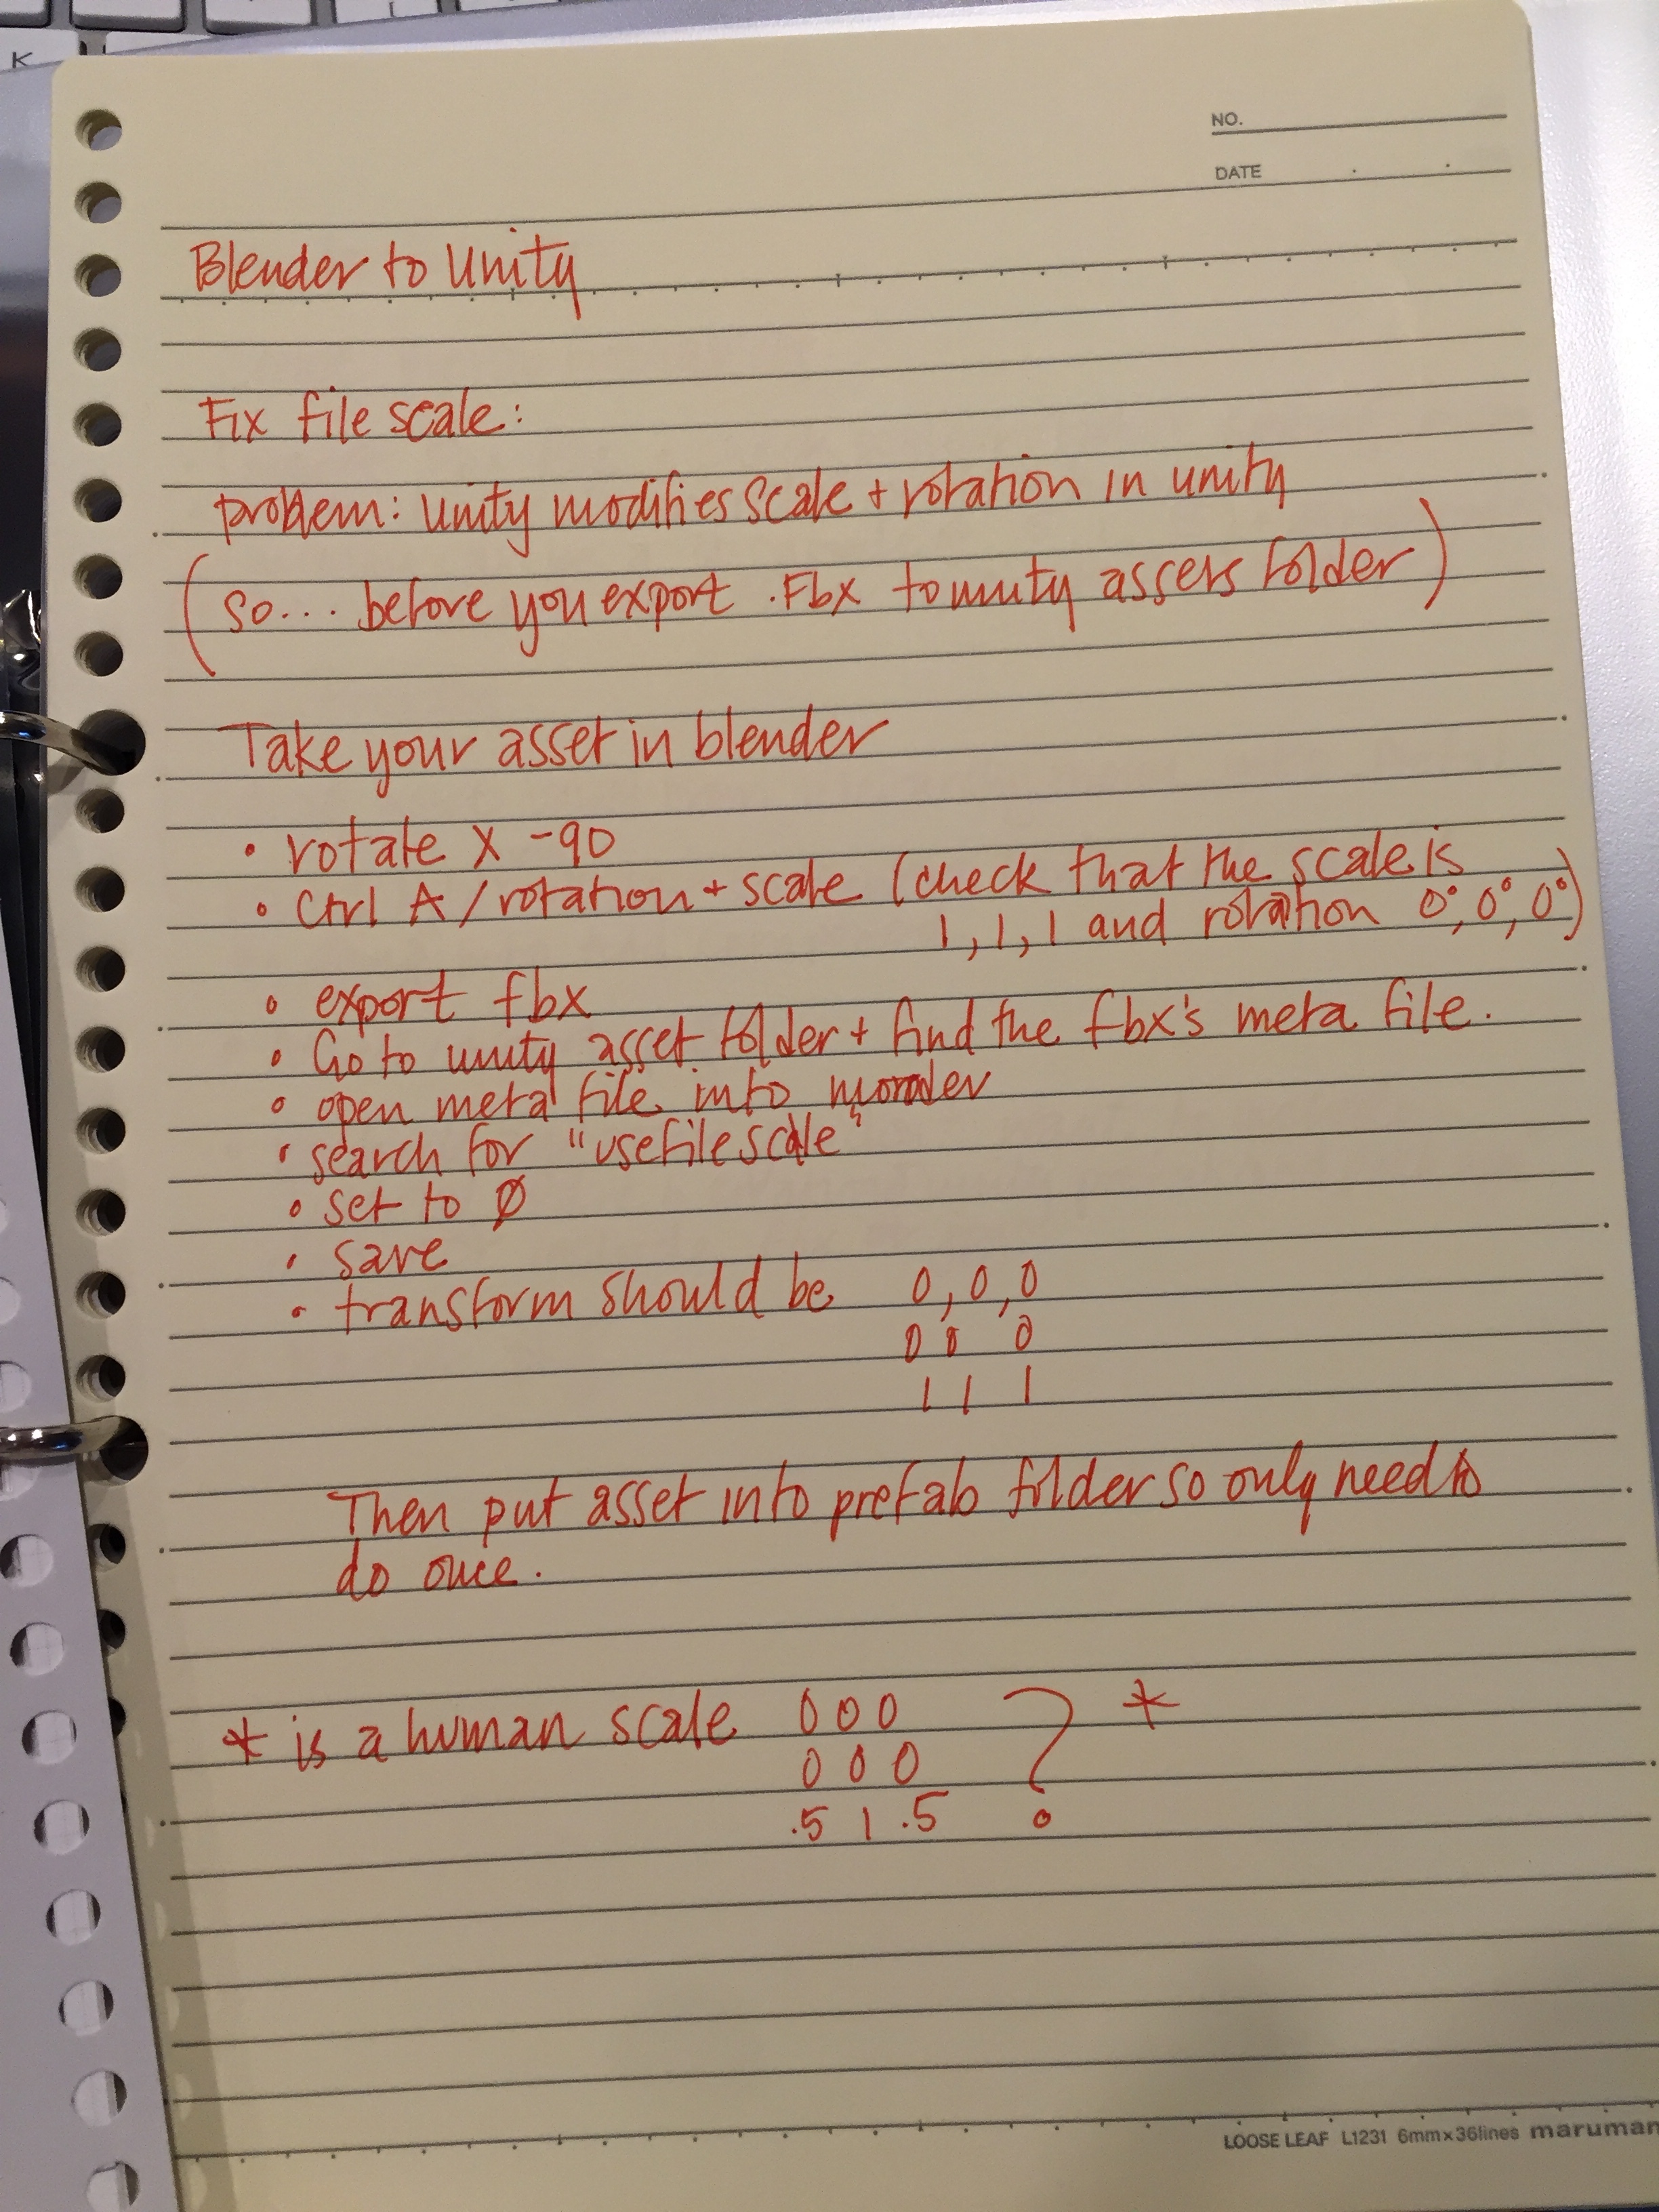 K
NO.
DATE
Blender to Unity
Fix file scale:
problem: unity modifies scale + rotation in unity
(so... before you export .Fbx to unity assets folder)
Take your asset in blender
• rotate X -90
• Ctrl A / rotation + scale (check that the scale is
1, 1, 1 and rotation 0°, 0°, 0°)
• export fbx
• Go to unity asset folder + find the fbx's meta file.
• open meta file into
• search for "usefilescale"
• set to Ø
• save
• transform should be 0, 0, 0
0 0 0
1 1 1
Then put asset into prefab folder so only need to
do once.
* is a human scale 0 0 0 ? *
0 0 0
.5 1 .5
LOOSE LEAF L1231 6mm×36lines maruman